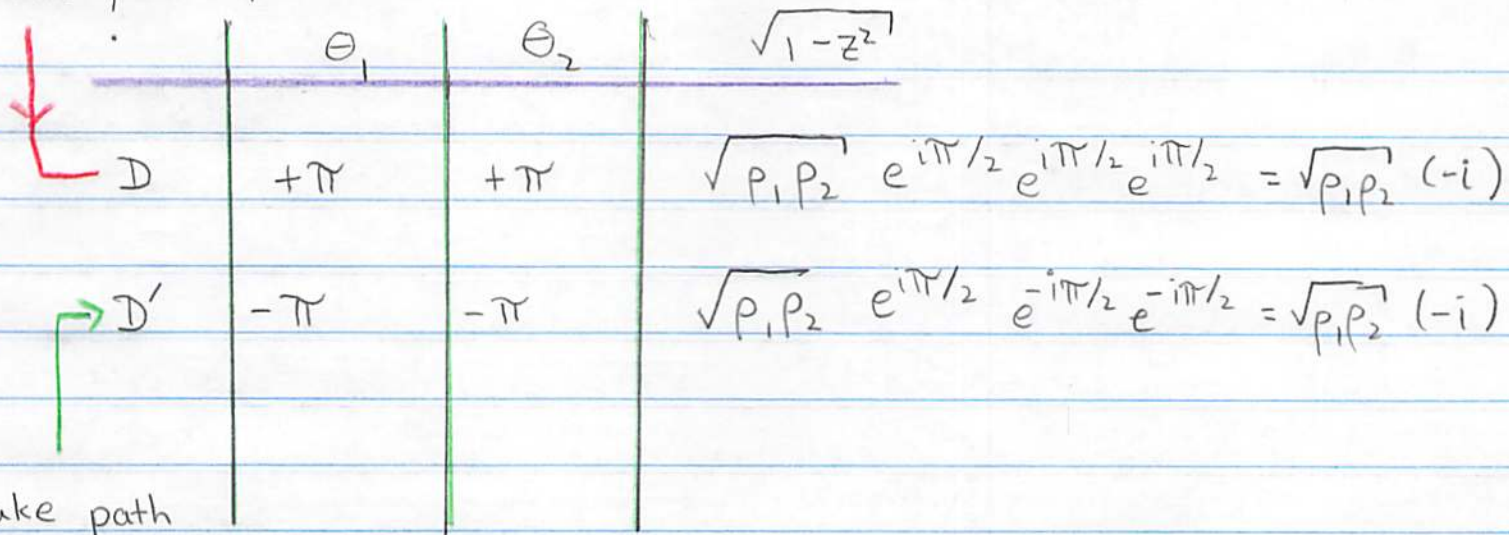 θ₁ θ₂ √(1-z²)
D +π +π √(ρ₁ρ₂) e^{iπ/2} e^{iπ/2} e^{iπ/2} = √(ρ₁ρ₂) (-i)
D' -π -π √(ρ₁ρ₂) e^{iπ/2} e^{-iπ/2} e^{-iπ/2} = √(ρ₁ρ₂) (-i)
path